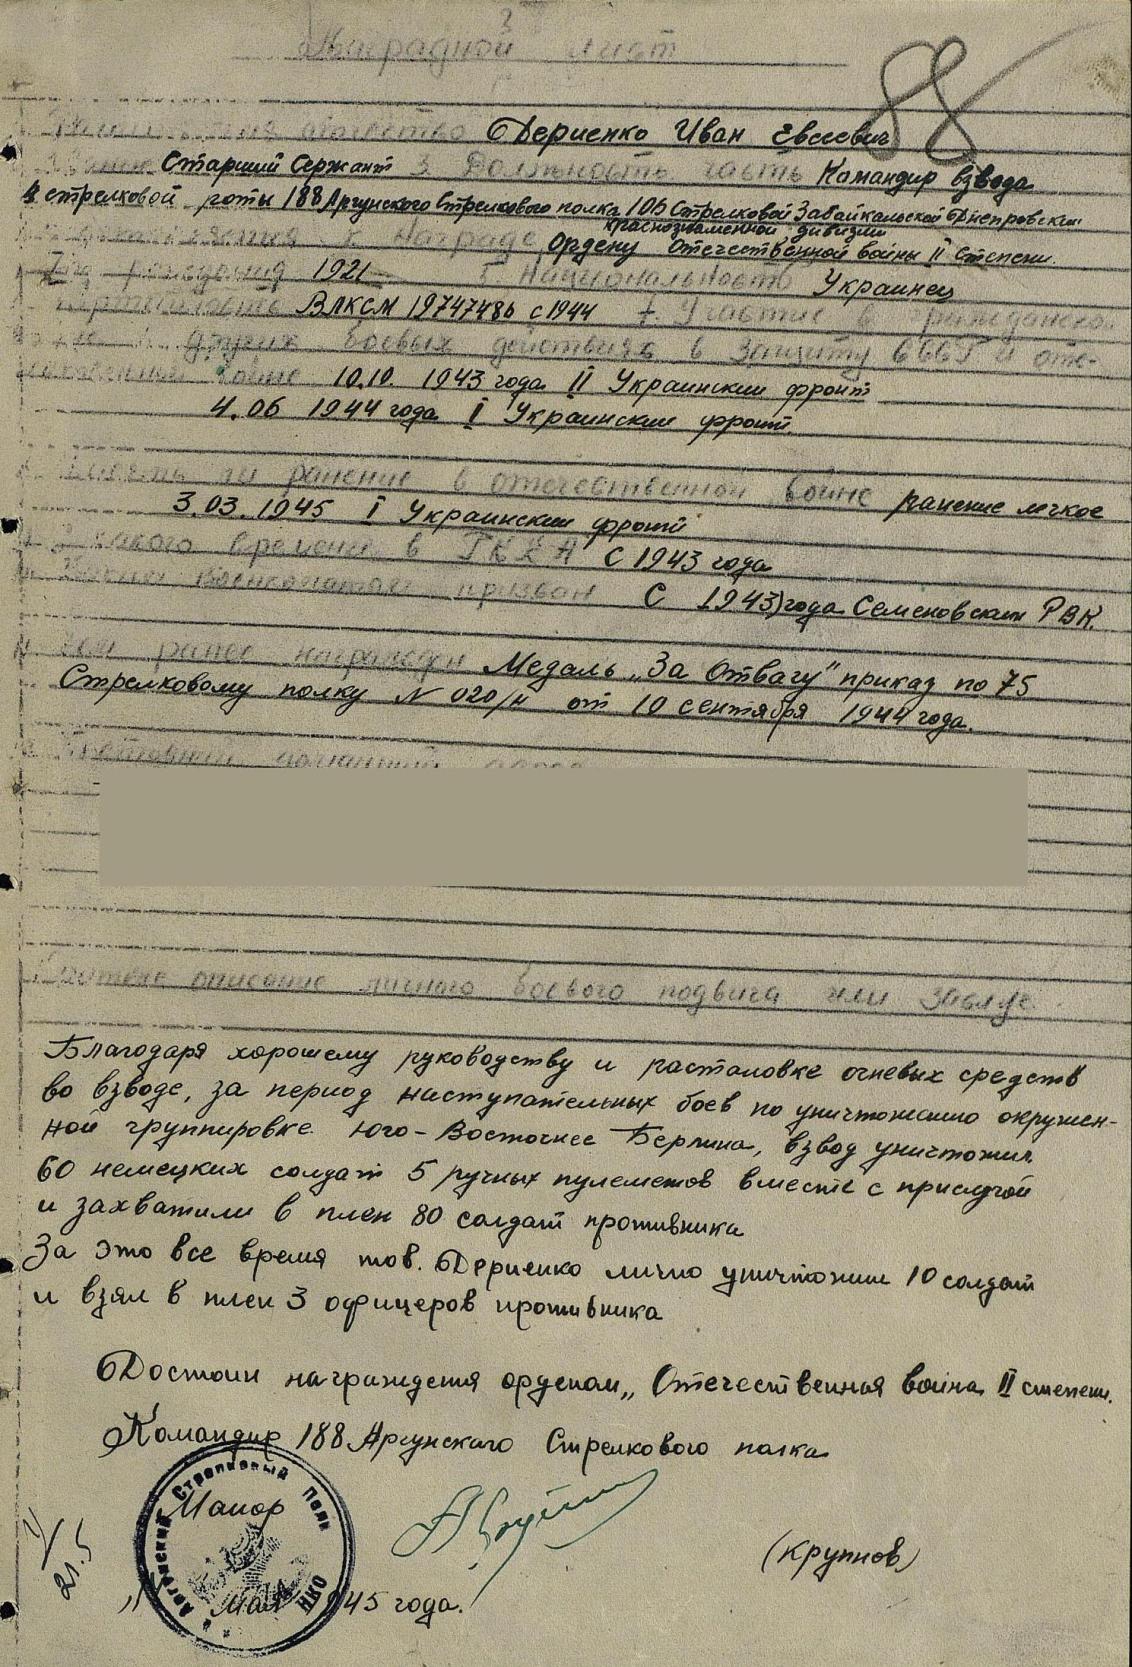 3
Наградной лист
88
Фамилия имя отчество Дериенко Иван Евсеевич
Звание Старший Сержант 3 Должность часть Командир взвода
4 стрелковой роты 188 Аргунского Стрелкового полка 106 Стрелковой Забайкальской Днепровской
краснознаменной дивизии
к награде Ордену Отечественной войны II Степени.
Год рождения 1921 Национальность Украинец
партийность ВЛКСМ 19747486 с 1944 7. Участие в гражданско
других боевых действиях в защиту СССР и оте-
чественной войне 10.10. 1943 года II Украинский фронт
4.06 1944 года I Украинский фронт.
Имеет ли ранение в отечественной войне ранение легкое
3.03.1945 I Украинский фронт
С какого времени в РККА С 1943 года
Каким военкоматом призван С 1943 года Семеновским РВК.
Чем ранее награжден Медаль „За Отвагу" приказ по 75
Стрелковому полку N 020/н от 10 сентября 1944 года.
Постоянный домашний адрес
Краткое описание личного боевого подвига или заслуг
Благодаря хорошему руководству и растановке огневых средств
во взводе, за период наступательных боев по уничтожению окружен-
ной группировке Юго-Восточнее Берлина, взвод уничтожил
60 немецких солдат 5 ручных пулеметов вместе с прислугой
и захватили в плен 80 солдат противника
За это все время тов. Дериенко лично уничтожил 10 солдат
и взял в плен 3 офицеров противника
Достоин награждения орденом „Отечественная война II степени.
Командир 188 Аргунского Стрелкового полка
Майор
(Крупнов)
„ Мая 1945 года.
Аргунский Стрелковый Полк
21.5